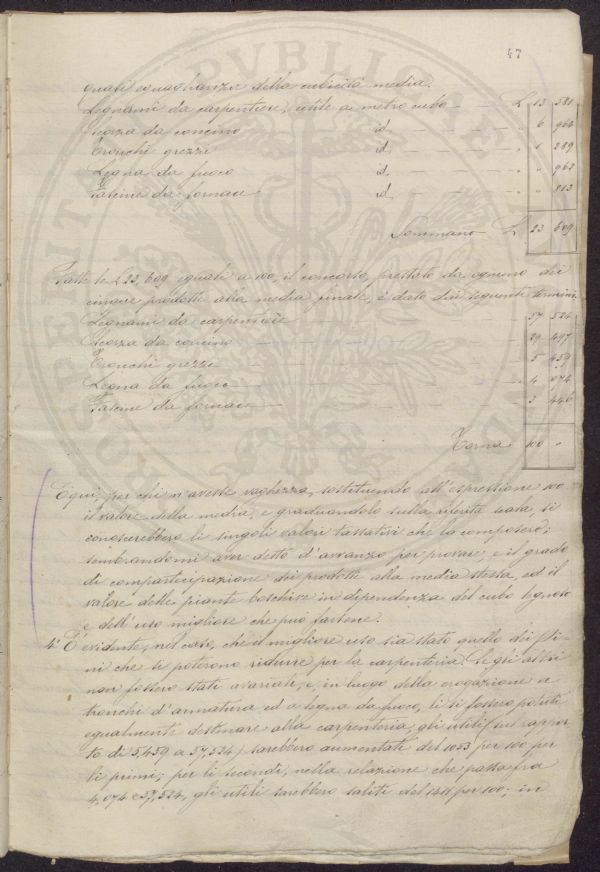 47
quali eguaglianza della cubicità media.
Legnami da carpentiere, utile a metro cubo — L 13 581
Scorza da concino id. — " 6 964
Tronchi grezzi id. — " 1 289
Legna da fuoco id. — " " 962
Fascine da fornace id. — " " 813
Sommano L 23 609
Fatte le L 23,609 eguali a 100, il concorso, prestato da ognuno dei
cinque prodotti alla media finale, è dato dai seguenti termini.
Legnami da carpentiere — 57 524
Scorza da concino — 29 497
Tronchi grezzi — 5 459
Legna da fuoco — 4 074
Fascine da fornace — 3 446
Torna 100 "
E qui, per chi n'avesse vaghezza, sostituendo all'espressione 100
il valore della media, e graduandolo sulla riferita scala, si
conoscerebbero li singoli valori tassativi che la composero;
sembrandomi aver detto d'avvanzo per provare, e il grado
di compartecipazione dei prodotti alla media stessa, ed il
valore delle piante boschive in dipendenza del cubo legnoso
e dell'uso migliore che può farsene.
4° È evidente, nel caso, che il migliore uso sia stato quello dei Pi-
ni che si poterono ridurre per la carpenteria. Se gli altri
non fossero stati avariati, e, in luogo della erogazione a
tronchi d'armatura ed a legna da fuoco, li si fossero potuti
egualmente destinare alla carpenteria, gli utili (sul rappor-
to di 5,459 a 57,524) sarebbero aumentati del 1053 per 100 per
li primi; per li secondi, nella relazione che passa fra
4,074 e 57,524, gli utili sarebbero saliti del 1411 per 100; in
HOSPITA
PVBLICAE